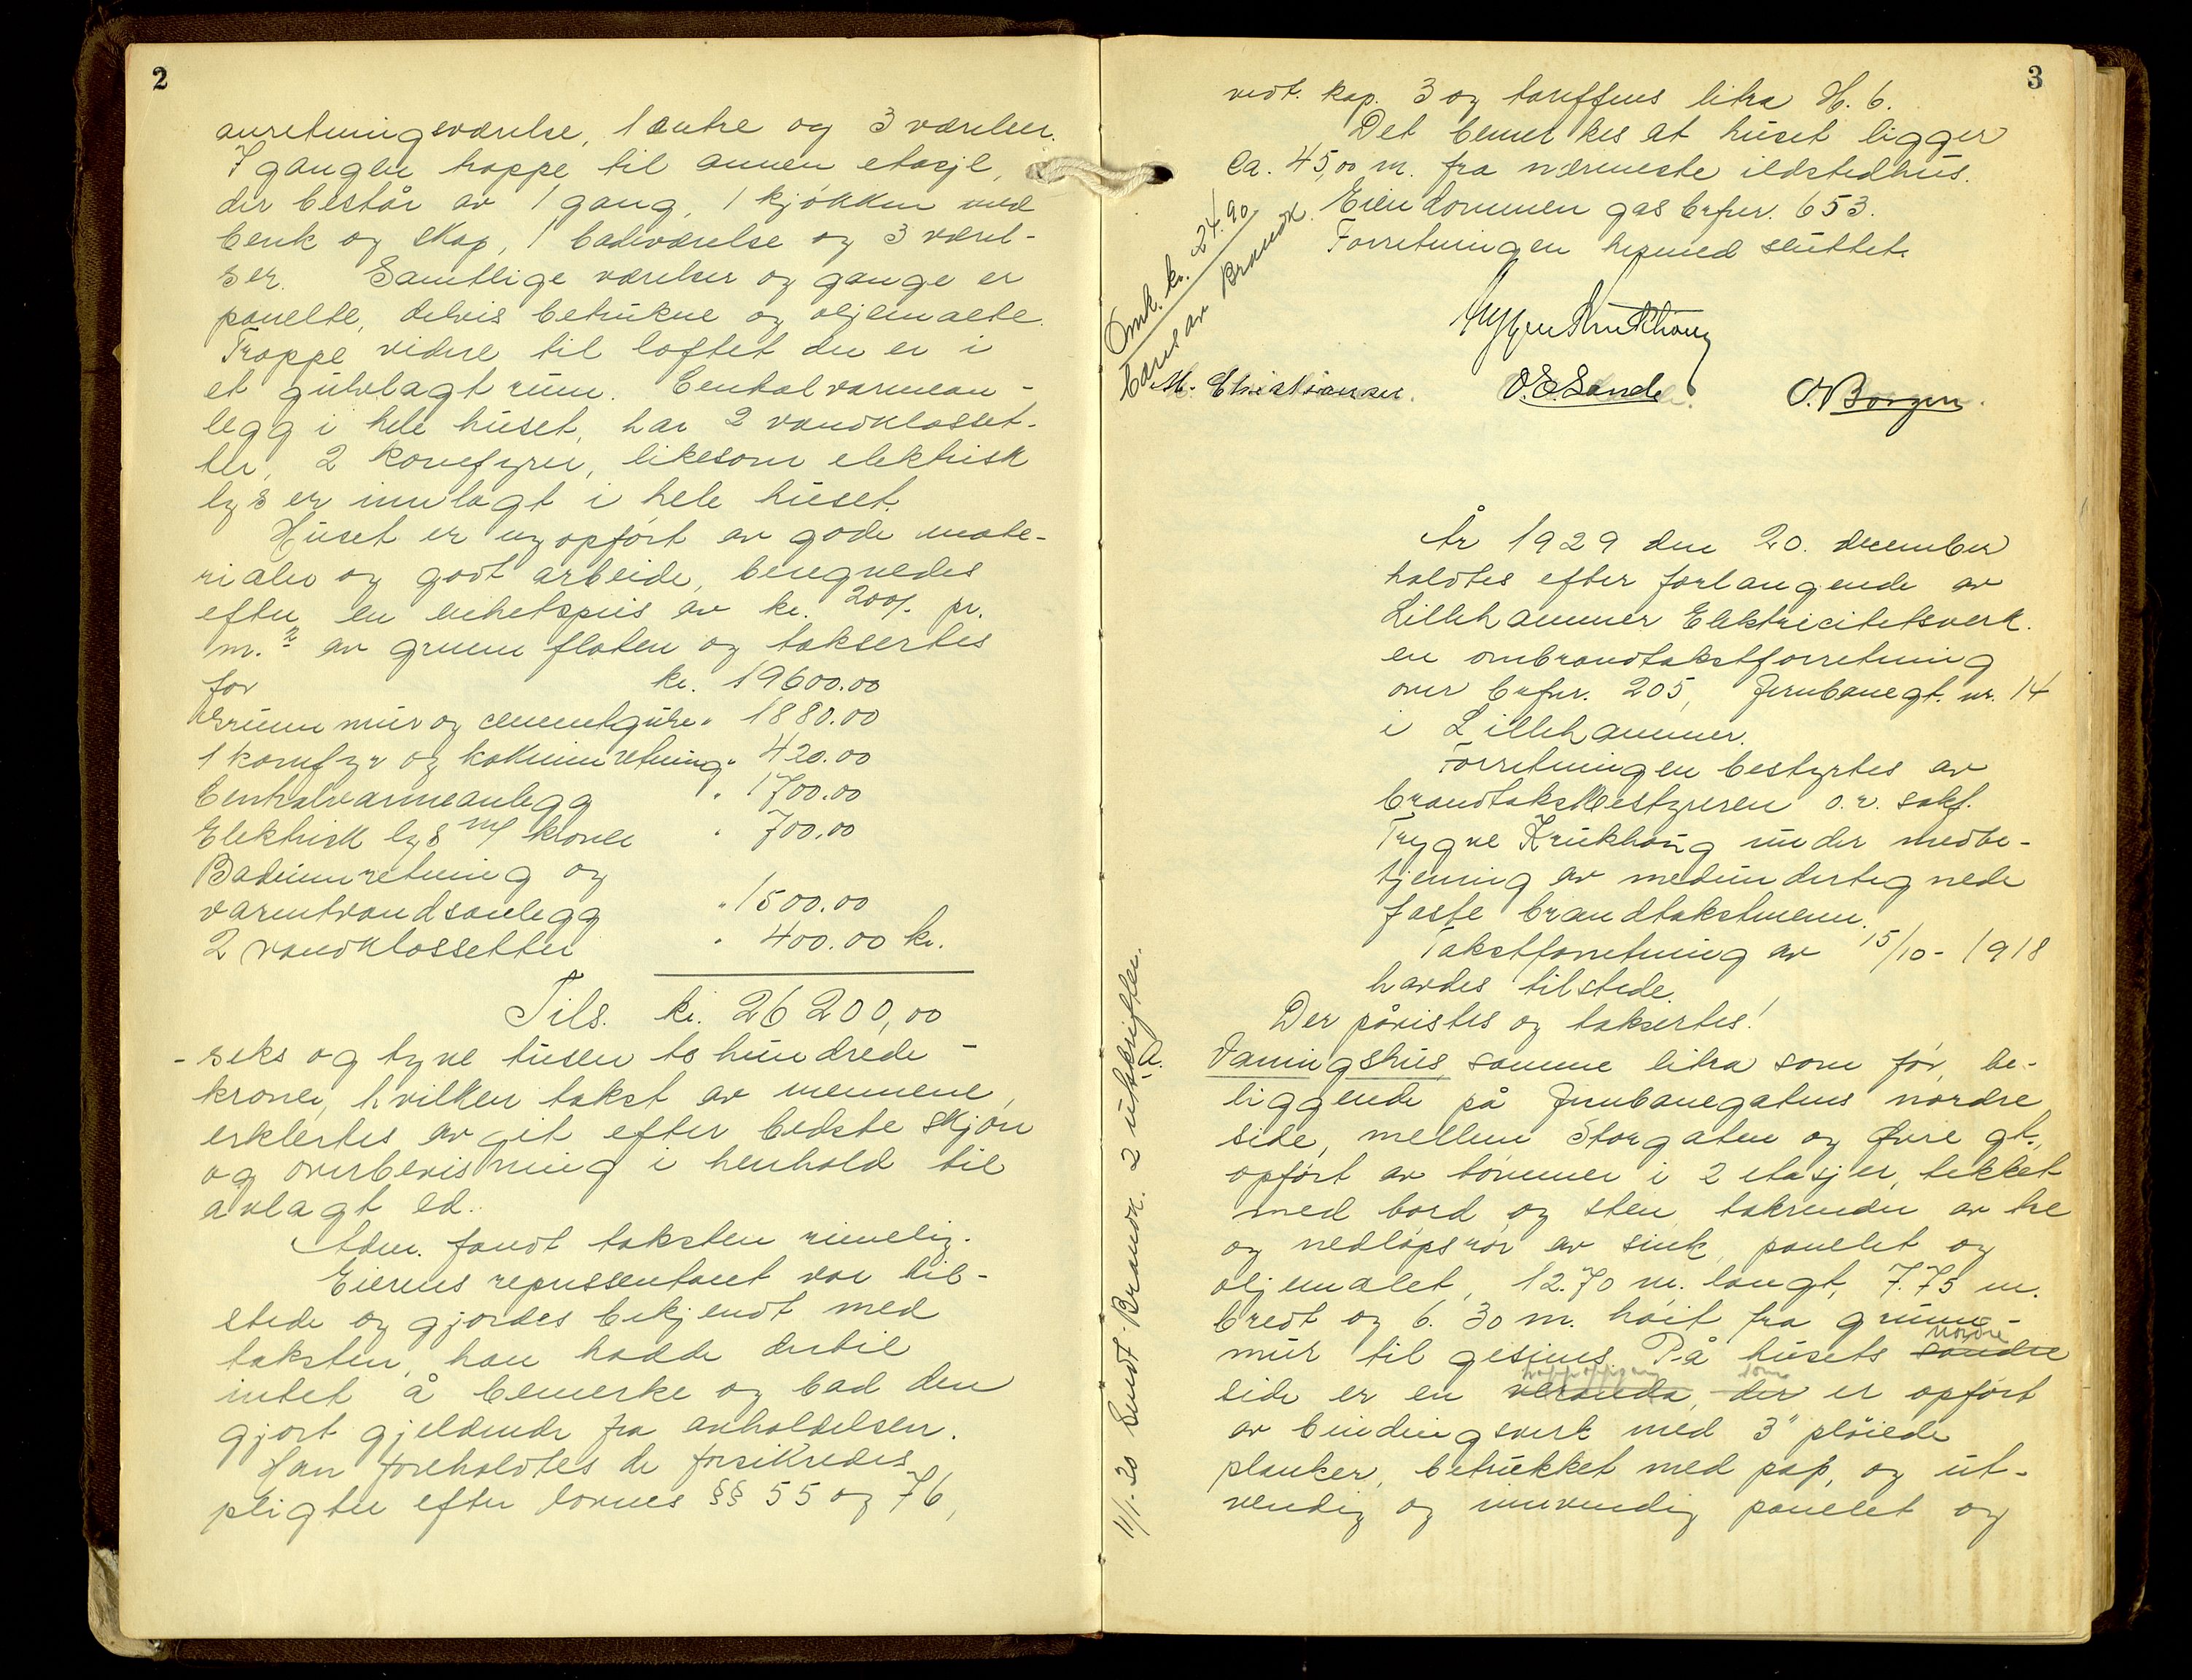 2
anretningsværelse, 1 entre og 3 værelser.
I gangen trappe til annen etasje,
der består av 1 gang, 1 kjøkken med
benk og skap, 1 badeværelse og 3 værel-
ser. Samtlige værelser og gange er
panelte, delvis betrukne og oljemalte.
Trappe videre til loftet der er i
et gulvlagt rum. Centralvarmean-
legg i hele huset, har 2 vandklosset-
ter, 2 komfyrer, likesom elektrisk
lys er innlagt i hele huset.
Huset er nyopført av gode mate-
rialer og godt arbeide, beregnedes
efter en enhetspris av kr. 200/- pr.
m.² av grunnflaten og taksertes
for kr. 19600.00
Grunnmur og cementgulv " 1880.00
1 komfyr og kokeinnretning " 420.00
Centralvarmeanlegg " 1700.00
Elektrisk lys m/ kroner " 700.00
Badeinnretning og
varmtvandsanlegg " 1500.00
2 vandklossetter " 400.00 kr.
Tils. kr. 26200,00
- seks og tyve tusen to hundrede -
kroner, hvilken takst av mennene,
erklertes avgit efter bedste skjøn
og overbevisning i henhold til
avlagt ed.
Adm. fandt taksten rimelig.
Eierens representant var til-
stede og gjordes bekjendt med
taksten, han hadde dertil
intet å bemerke og bad den
gjort gjeldende fra avholdelsen.
Han foreholdtes de forsikredes
pligter efter lovens §§ 55 og 76,
3
vedt. kap. 3 og tariffens litra H. 6.
Det bemerkes at huset ligger
ca. 45,00 m. fra nærmeste ildstedhus.
Eiendommen gas brfnr. 653.
Forretningen hermed sluttet.
Omk. kr. 24.90
bæres av Brandk.
Trygve Krukhaug
M. Christiansen. O. E. Sande O. Borgen.
År 1929 den 20. december
holdtes efter forlangende av
Lillehammer Elektricitetsverk.
en ombrandtakstforretning
over brfnr. 205, Jernbanegt. nr. 14
i Lillehammer.
Forretningen bestyrtes av
brandtakstbestyreren o.r. sakf.
Trygve Krukhaug under medbe-
tjening av medundertegnede
faste brandtakstmenn.
Takstforretning av 15/10-1918
havdes tilstede.
Der påvistes og taksertes!
a.
Vaningshus, samme litra som før, be-
liggende på Jernbanegatens nordre
side, mellem Storgaten og Øvre gt.,
opført av tømmer i 2 etasjer, tekket
med bord og sten, takrender av tre
og nedløpsrør av sink, panelet og
oljemalet, 12.70 m. langt, 7.75 m.
bredt og 6.30 m. høit fra grunn-
mur til gesims. På husets søndre nordre
side er en veranda, der som er opført
av bindingsverk med 3" pløiede
planker, betrukket med pap, og ut-
vendig og innvendig panelet og
11/1-30 Sendt Brandk. 2 utskrifter.